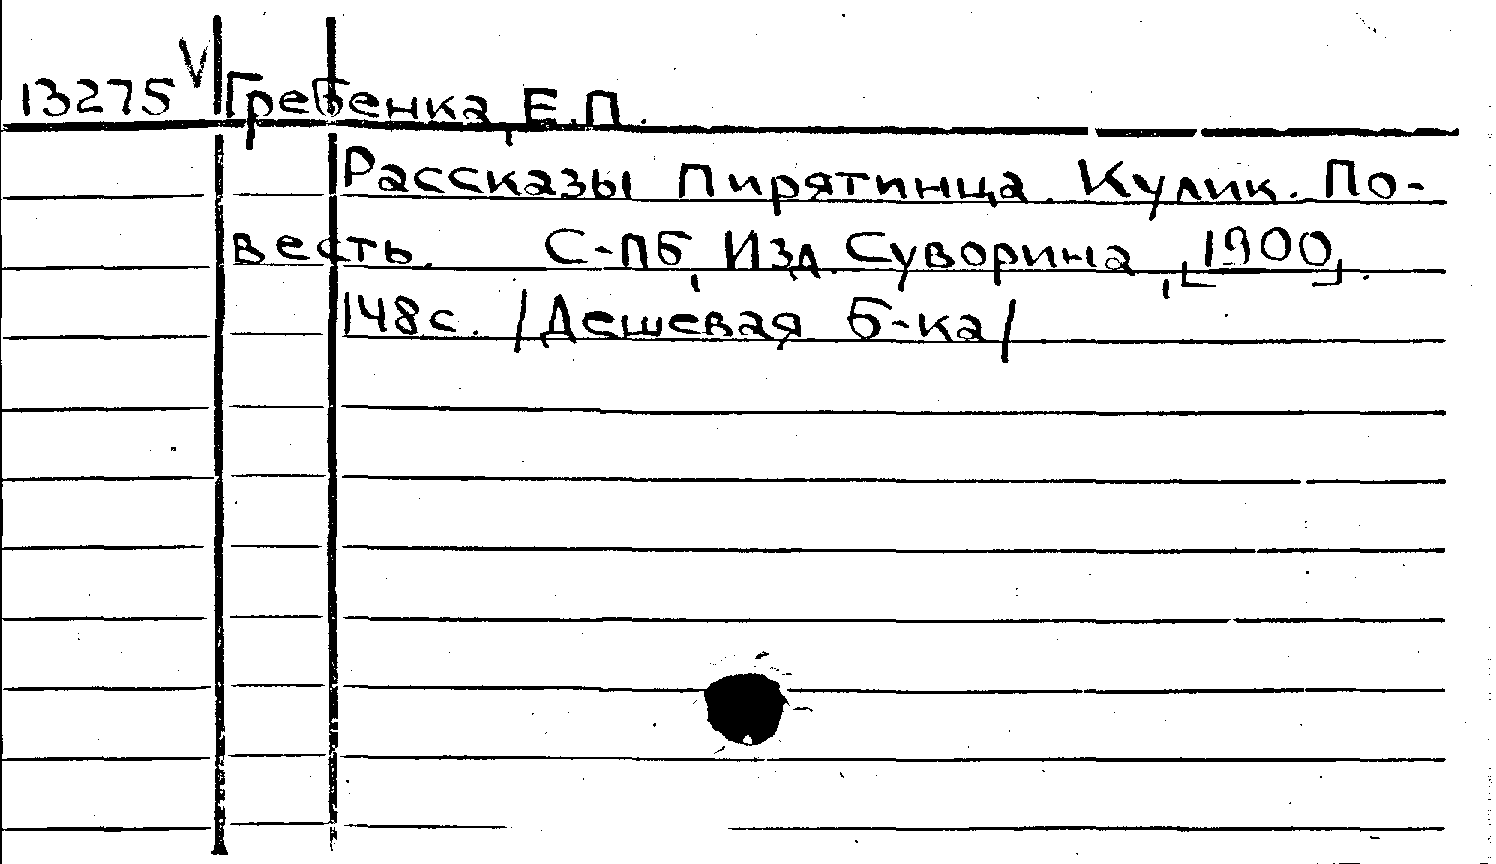 13275 V Гребенка, Е.П.
Рассказы Пирятинца. Кулик. По-
весть. С-ПБ, Изд. Суворина, [1900].
148 с. /Дешевая б-ка/